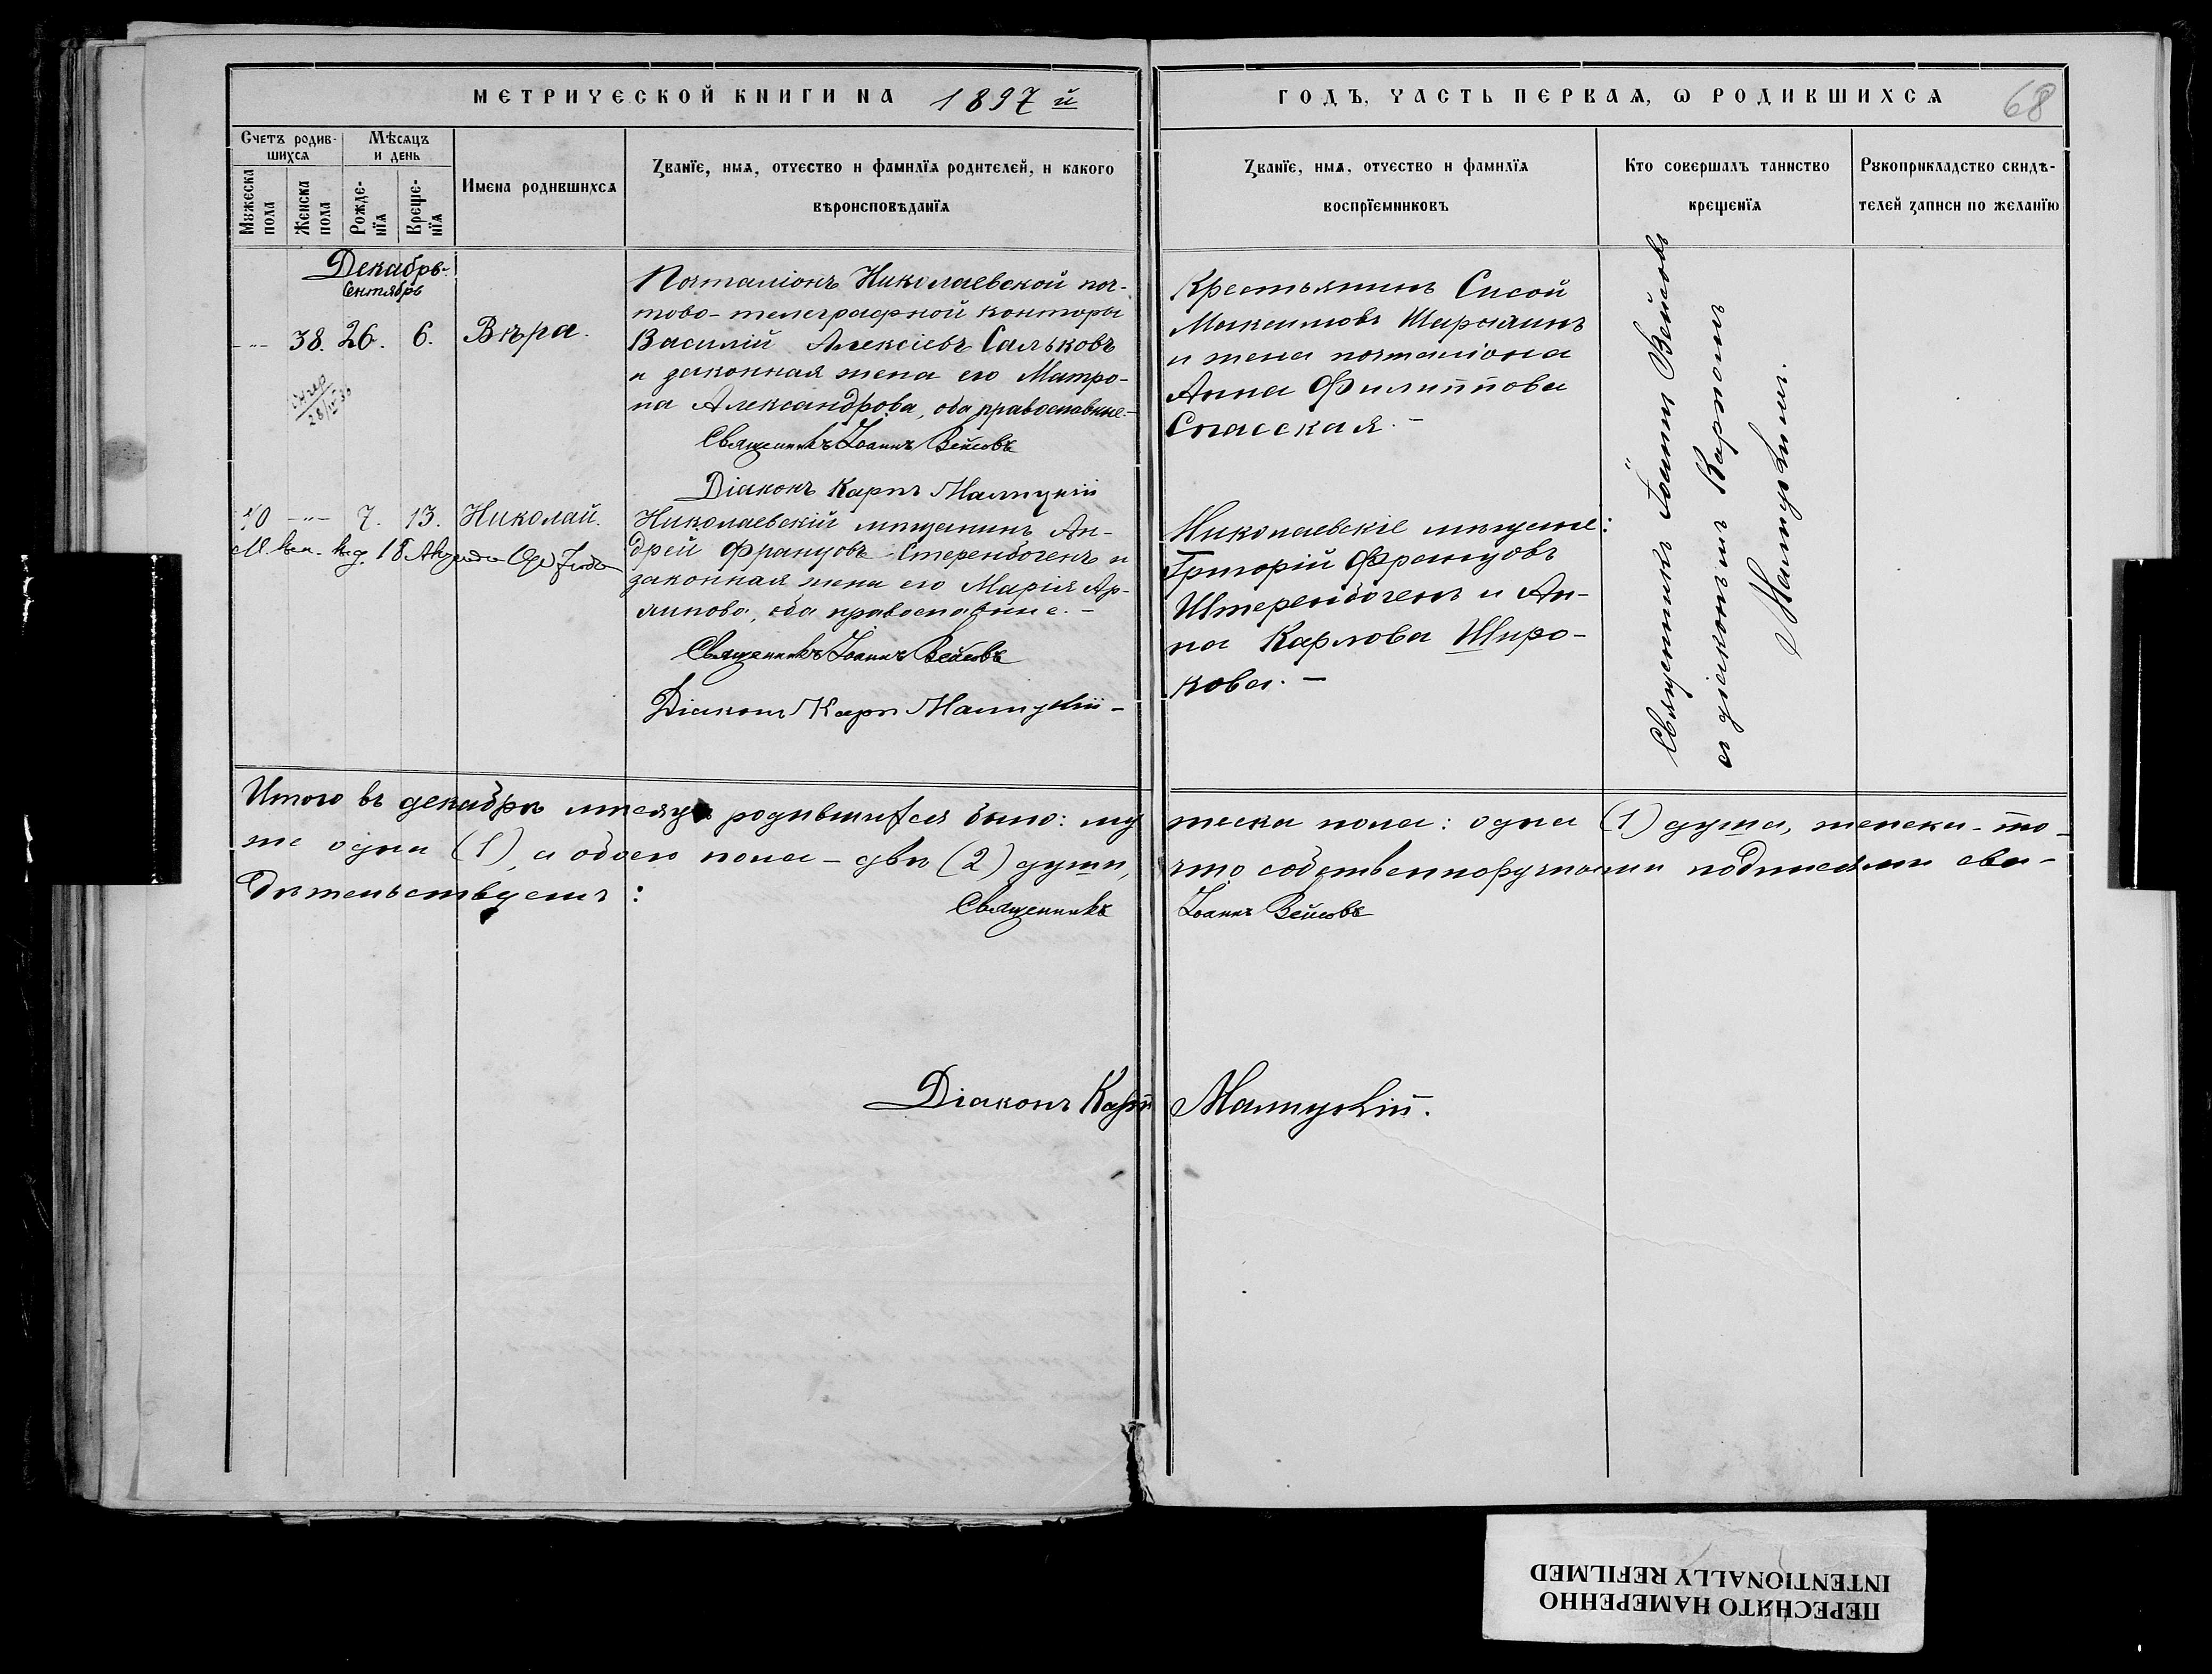 МЕТРИЧЕСКОЙ КНИГИ НА 1897 й
ГОДЪ, ЧАСТЬ ПЕРВАЯ, Ѡ РОДИВШИХСЯ
68
Счетъ родив-
шихся
Мѣсяцъ
и день
Мужеска
пола
Женска
пола
Рожде-
нїя
Креще-
нїя
Имена родившихся
Званїе, имя, отчество и фамилїя родителей, и какого
вѣроисповѣданїя
Званїе, имя, отчество и фамилїя
воспрїемниковъ
Кто совершалъ таинство
крещенїя
Рукоприкладство свидѣ-
телей записи по желанїю
Декабрь.
Сентябрь
-"- 38. 26. 6. Вѣра.
Почталіонъ Николаевской поч-
тово-телеграфной конторы
Василій Алексіевъ Сальковъ
и законная жена его Матро-
на Александрова, оба православные.-
Священникъ Іоаннъ Вейсовъ
Діаконъ Карпъ Малицкій
Крестьянинъ Сисой
Максимовъ
и жена почталіона
Анна Филиппова
Спасская.-
40 -"- 7. 13. Николай.
Николаевскій мѣщанинъ Ан-
дрей Францовъ Стеренбогенъ и
законная жена его Марія
оба православные.-
Священникъ Іоаннъ Вейсовъ
Діаконъ Карпъ Малицкій-
Николаевскіе мѣщане:
Григорій Францовъ
Штеренбогенъ и Ан-
на Карлова Широ-
кова.-
Священникъ Іоаннъ Вейсовъ
съ діакономъ Карпомъ
Малицкимъ.
Итого въ декабрѣ мѣсяцѣ родившихся было: му жеска пола: одна (1) душа, женска-то-
же одна (1), а обоего пола-двѣ (2) души, что собственноручными подписями сви-
дѣтельствуемъ:
Священникъ Іоаннъ Вейсовъ
Діаконъ Карпъ Малицкій.
ПЕРЕСНЯТО НАМЕРЕННО
INTENTIONALLY REFILMED